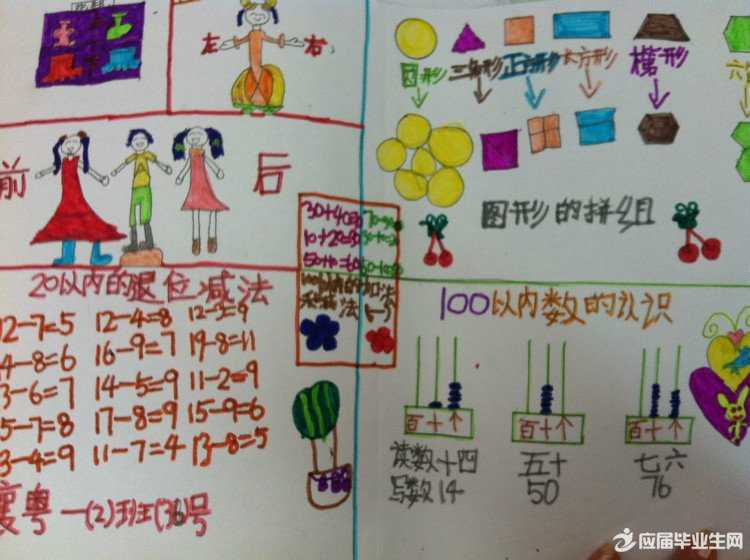 左 右
圆形 三角形 正方形 长方形 梯形 六
前 后
图形的拼组
30+40=
10+20=30
50+10=60
20以内的退位减法
12-7=5 12-4=8
14-8=6 16-9=7 19-8=11
13-6=7 14-5=9 11-2=9
15-7=8 17-8=9 15-9=6
13-4=9 11-7=4 13-8=5
一(2)班(36)号
100以内数的认识
百十个 百十个 百十个
读数十四 五十 七六
写数14 50 76
应届毕业生网